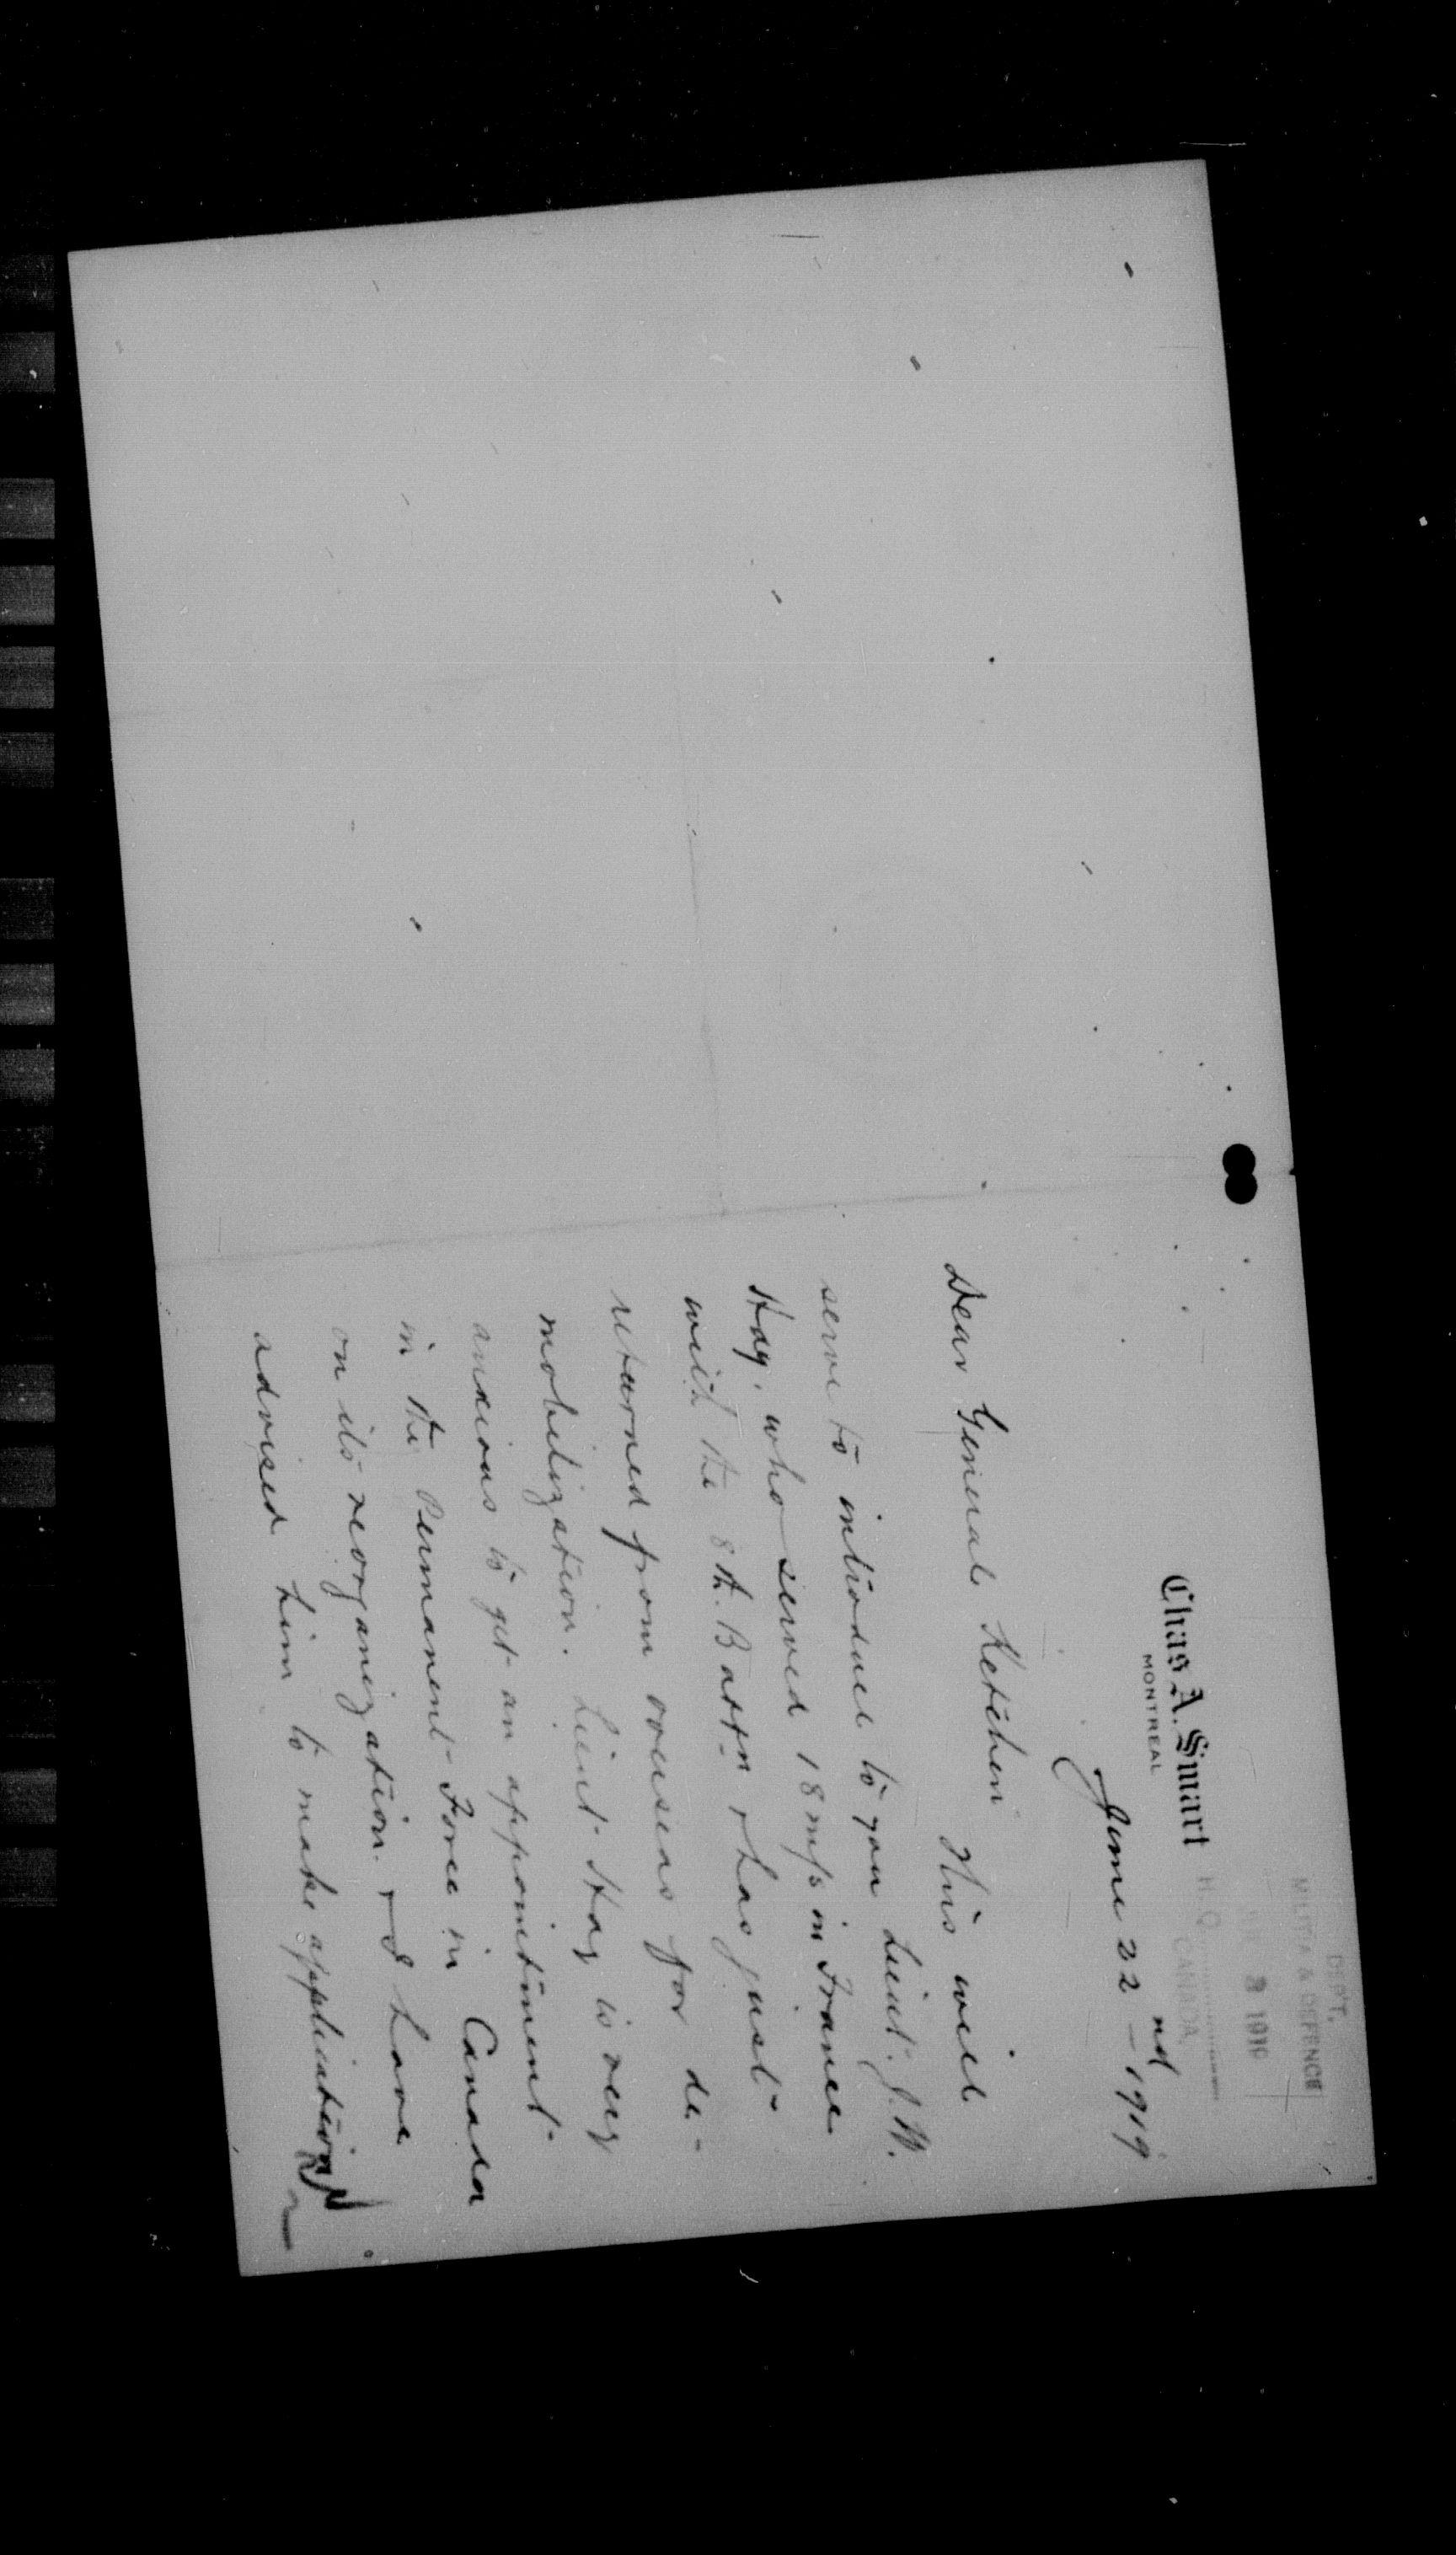 DEP'T.
MILITIA & DEFENCE
2 1919
H. Q.
CANADA.
Chas A. Smart
MONTREAL
June 22nd - 1919
Dear General Ketchen
This will
serve to introduce to you Lieut. J. W.
Hay, who served 18 m/s in France
with the 8th. Battn & has just
returned from overseas for de-
mobilization. Lieut. Hay is very
anxious to get an appointment
in the Permanent Force in Canada
on its reorganization & I have
advised him to make application